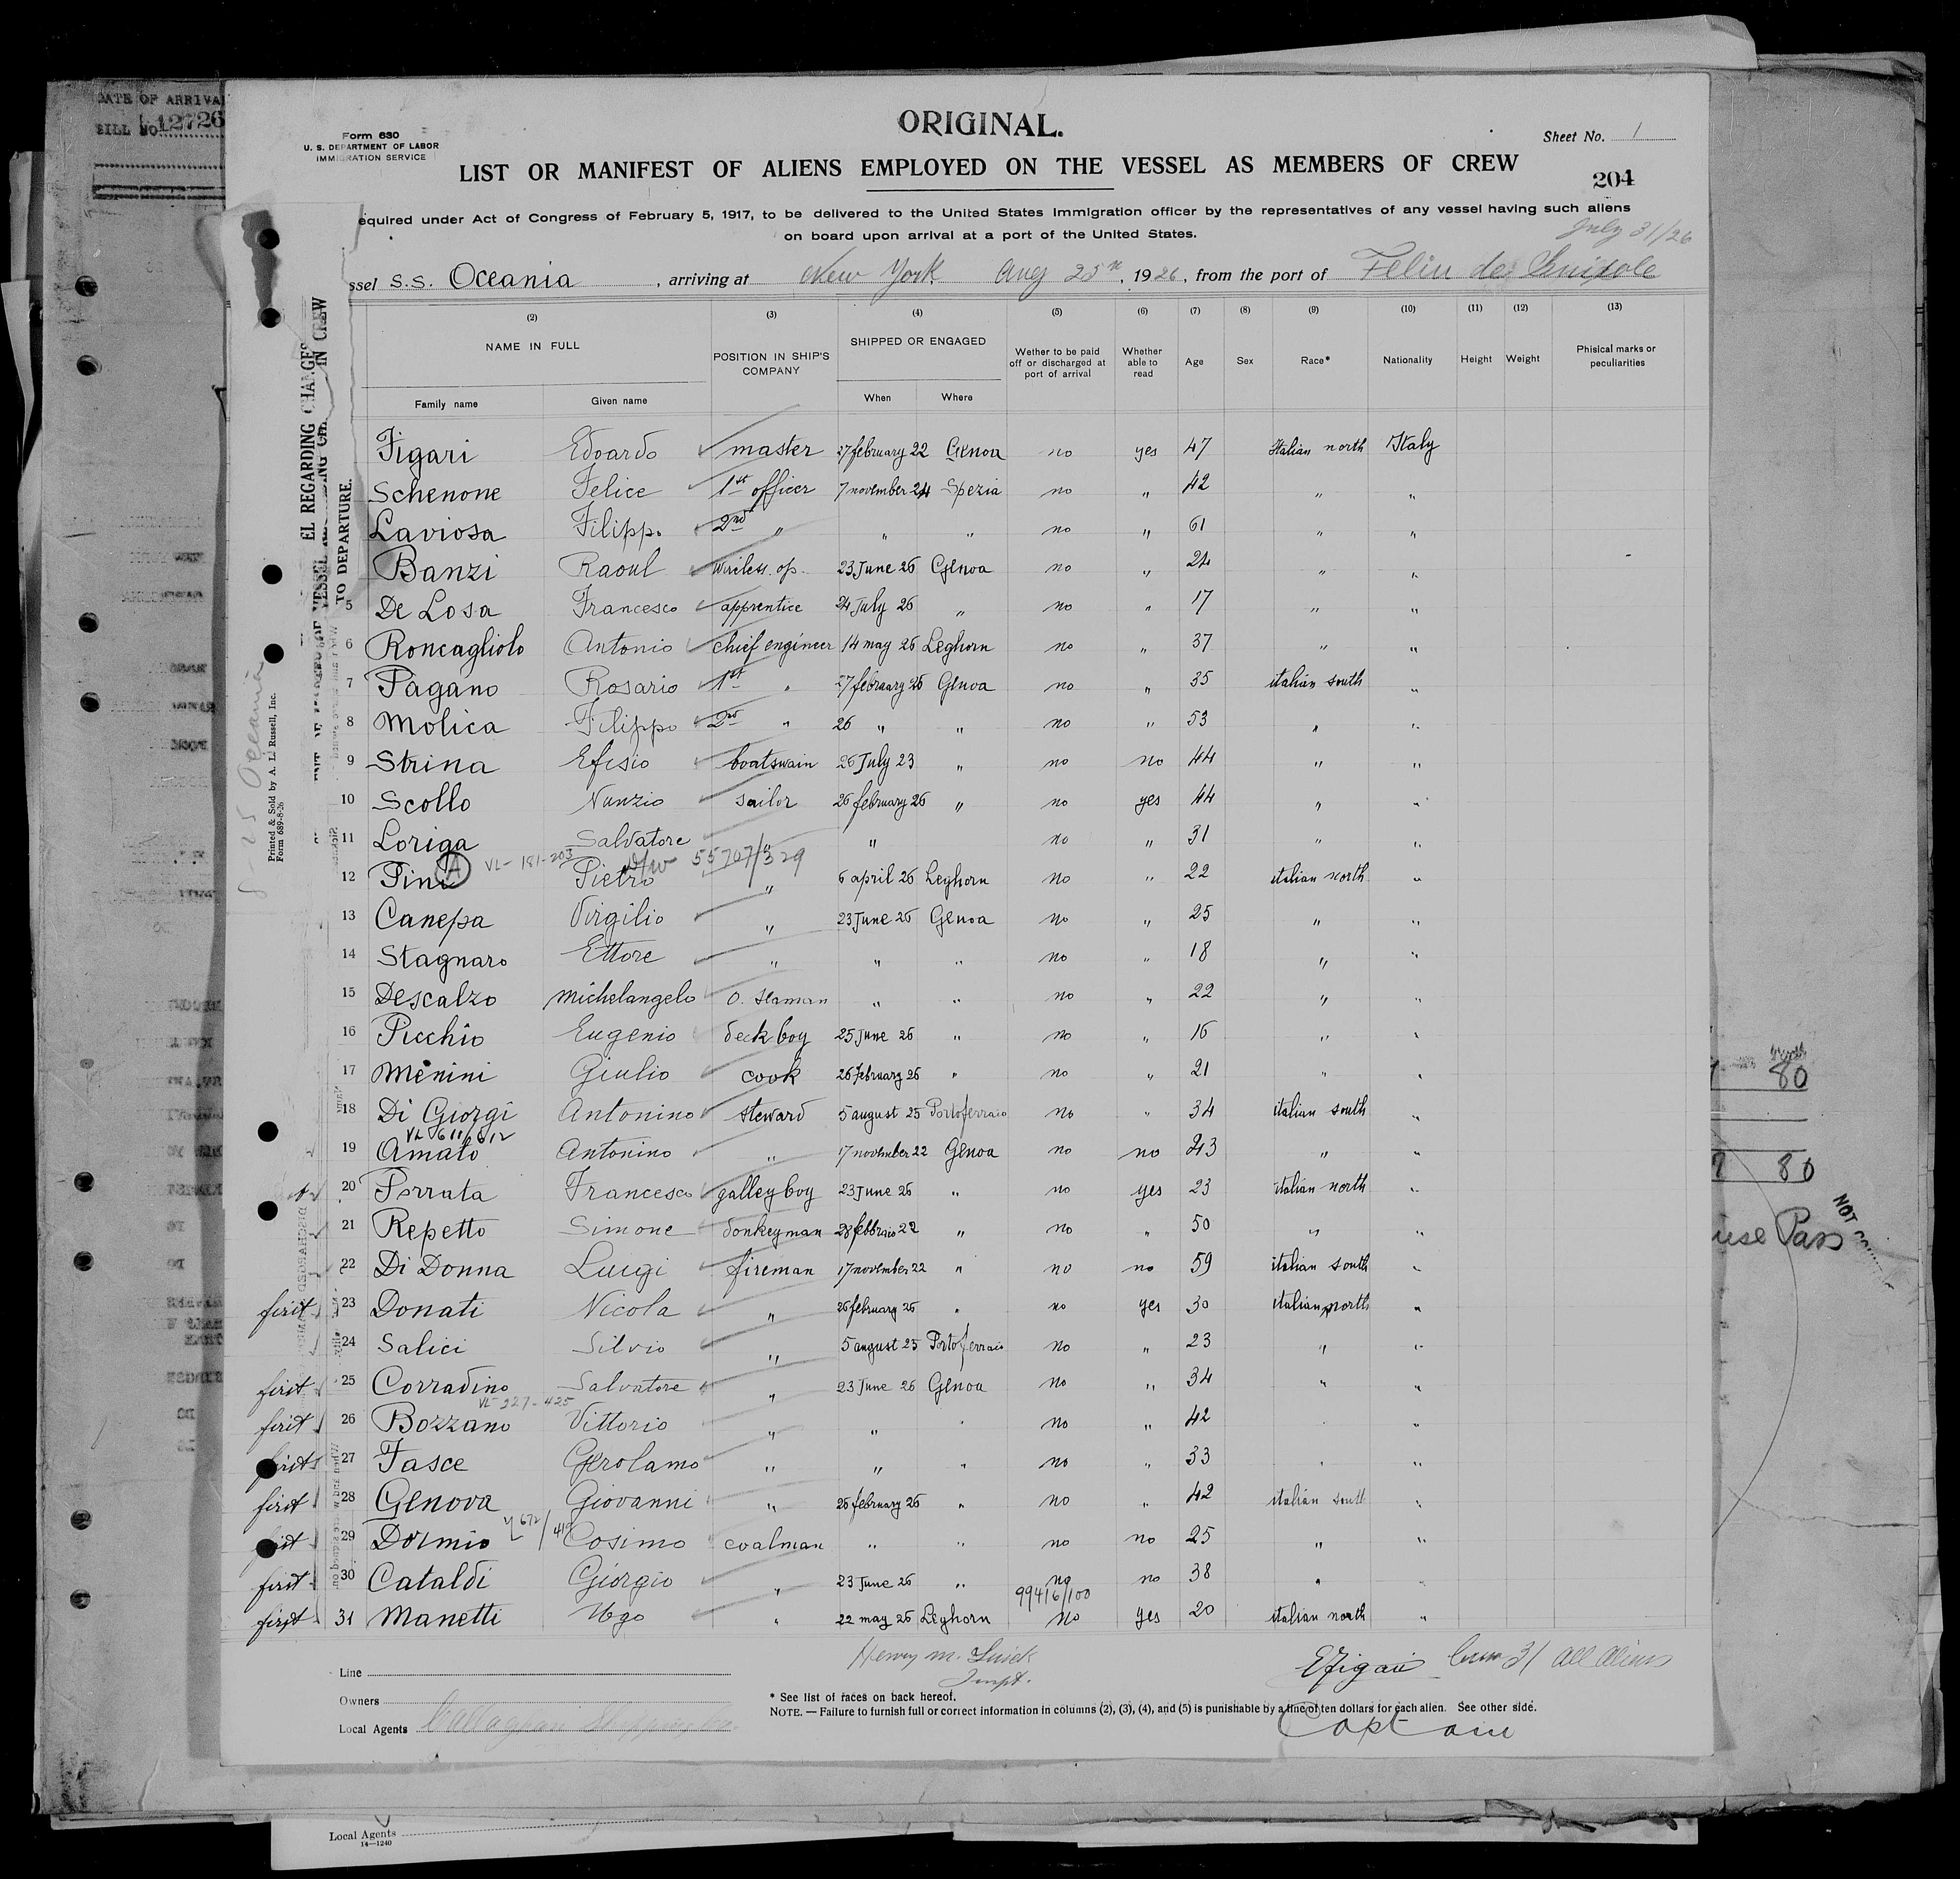 DATE OF ARRIVA
BILL NO. 12726
ORIGINAL.
Form 630
U. S. DEPARTMENT OF LABOR
IMMIGRATION SERVICE
Sheet No. 1
LIST OR MANIFEST OF ALIENS EMPLOYED ON THE VESSEL AS MEMBERS OF CREW
204
equired under Act of Congress of February 5, 1917, to be delivered to the United States Immigration officer by the representatives of any vessel having such aliens
on board upon arrival at a port of the United States.
July 31/26
ssel S.S. Oceania, arriving at New York Aug 25th, 1926, from the port of Feliu de
(2) (3) (4) (5) (6) (7) (8) (9) (10) (11) (12) (13)
NAME IN FULL POSITION IN SHIP'S COMPANY SHIPPED OR ENGAGED Wether to be paid off or discharged at port of arrival Whether able to read Age Sex Race* Nationality Height Weight Phisical marks or peculiarities
Family name Given name When Where
Figari Edoardo master 27 february 22 Genoa no yes 47 Italian north Italy
Schenone Felice 1st officer 7 november 24 Spezia no " 42 " "
Laviosa Filippo 2nd " " " no " 61 " "
Banzi Raoul wireless. op. 23 June 26 Genoa no " 24 " "
5 De Losa Francesco apprentice 24 July 26 " no " 17 " "
6 Roncagliolo Antonio chief engineer 14 may 26 Leghorn no " 37 " "
7 Pagano Rosario 1st " 27 february 26 Genoa no " 35 italian south "
8 Molica Filippo 2nd " 26 " " no " 53 " "
9 Strina Efisio boatswain 26 July 23 " no no 44 " "
10 Scollo Nunzio sailor 26 february 26 " no yes 44 " "
11 Loriga Salvatore " " no " 31 " "
A VL-181-203 55707/329
12 Pini Pietro " 6 april 26 Leghorn no " 22 italian north "
13 Canepa Virgilio " 23 June 26 Genoa no " 25 " "
14 Stagnaro Ettore " " " no " 18 " "
15 Descalzo Michelangelo O. seaman " " no " 22 " "
16 Picchio Eugenio deck boy 25 June 26 " no " 16 " "
17 Menini Giulio cook 26 February 26 " no " 21 " "
18 Di Giorgi Antonino steward 5 august 25 Portoferraio no " 34 italian south "
VL 611/612
19 Amato Antonino " 17 november 22 Genoa no no 43 " "
20 Ferrata Francesco galley boy 23 June 26 " no yes 23 italian north "
21 Repetto Simone donkeyman 28 febbraio 22 " no " 50 " "
22 Di Donna Luigi fireman 17 november 22 " no no 59 italian south "
first 23 Donati Nicola " 26 february 26 " no yes 30 italian north "
24 Salici Silvio " 5 august 25 Portoferraio no " 23 " "
first 25 Corradino Salvatore " 23 June 26 Genoa no " 34 " "
VL-227-425
first 26 Bozzano Vittorio " " " no " 42 " "
first 27 Fasce Gerolamo " " " no " 33 " "
first 28 Genova Giovanni " 26 february 26 " no " 42 italian south "
first 29 Dormio Cosimo coalman " " no no 25 " "
first 30 Cataldi Giorgio " 23 June 26 " no no 38 " "
99416/100
first 31 Manetti Ugo " 22 may 26 Leghorn no yes 20 italian north "
Line
Owners
Local Agents
Henry M.
Inspt.
EFigari
Crew 31 all aliens
Captain
* See list of races on back hereof.
NOTE. — Failure to furnish full or correct information in columns (2), (3), (4), and (5) is punishable by a fine of ten dollars for each alien. See other side.
EL REGARDING CHANGES IN CREW
TO DEPARTURE.
Printed & Sold by A. L. Russell, Inc.
Form 689-8-26
8-25 Oceania
80
80
Pass
NOT
Local Agents
14—1240